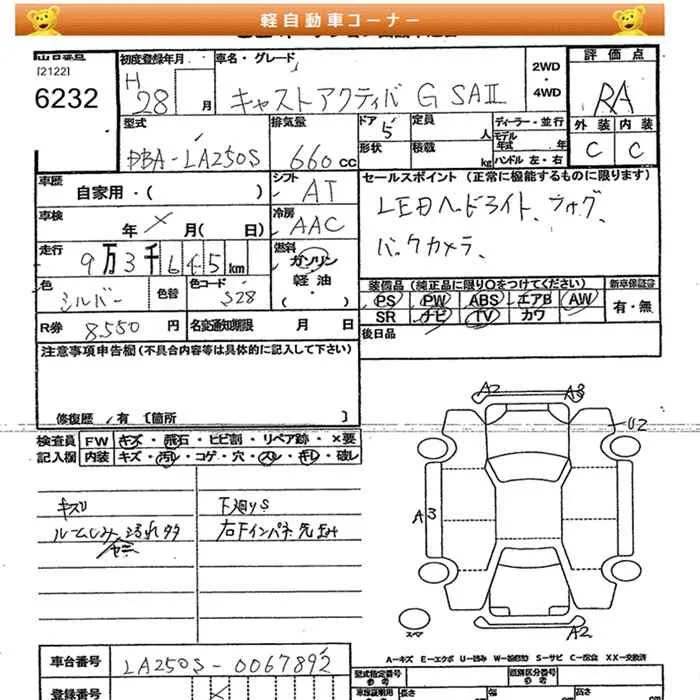 軽自動車コーナー
[2122]
6232
初度登録年月
H
28 月
車名・グレード
キャストアクティバ G SAⅡ
2WD
・
4WD
評価点
RA
外装 内装
C C
型式
DBA-LA250S
排気量
660 cc
ドア 5
定員 人
形状
積載 kg
ディーラー・並行
モデル年式 年
ハンドル 左・右
車歴
自家用・( )
シフト
AT
車検
年 × 月( 日)
冷房
AAC
走行
9万3千645km
燃料
ガソリン
軽油
・( )
色
シルバー
色替
色コード
S28
R券 8,550 円
名変通知期限 月 日
セールスポイント (正常に機能するものに限ります)
LEDヘッドライト、ウォグ、
バックカメラ、
装備品 (純正品に限り○をつけてください)
新車保証書
PS PW ABS エアB AW
SR ナビ TV カワ
有・無
後日品
注意事項申告欄 (不具合内容等は具体的に記入して下さい)
修復歴 有 〔箇所 〕
検査員 FW キズ・飛石・ヒビ割・リペア跡・×要
記入欄 内装 キズ・汚レ・コゲ・穴・スレ・キレ・破レ
キズリ
下廻りS
右下インパネ先
A2
A3
U2
A3
A2
スペア
A-キズ E-エクボ U-凹み W-波(補修) S-サビ C-腐食 XX-交換済
車台番号
LA250S-0067892
登録番号
型式指定番号
参考
類別区分番号
参考
車庫証明用
長さ
幅
高さ